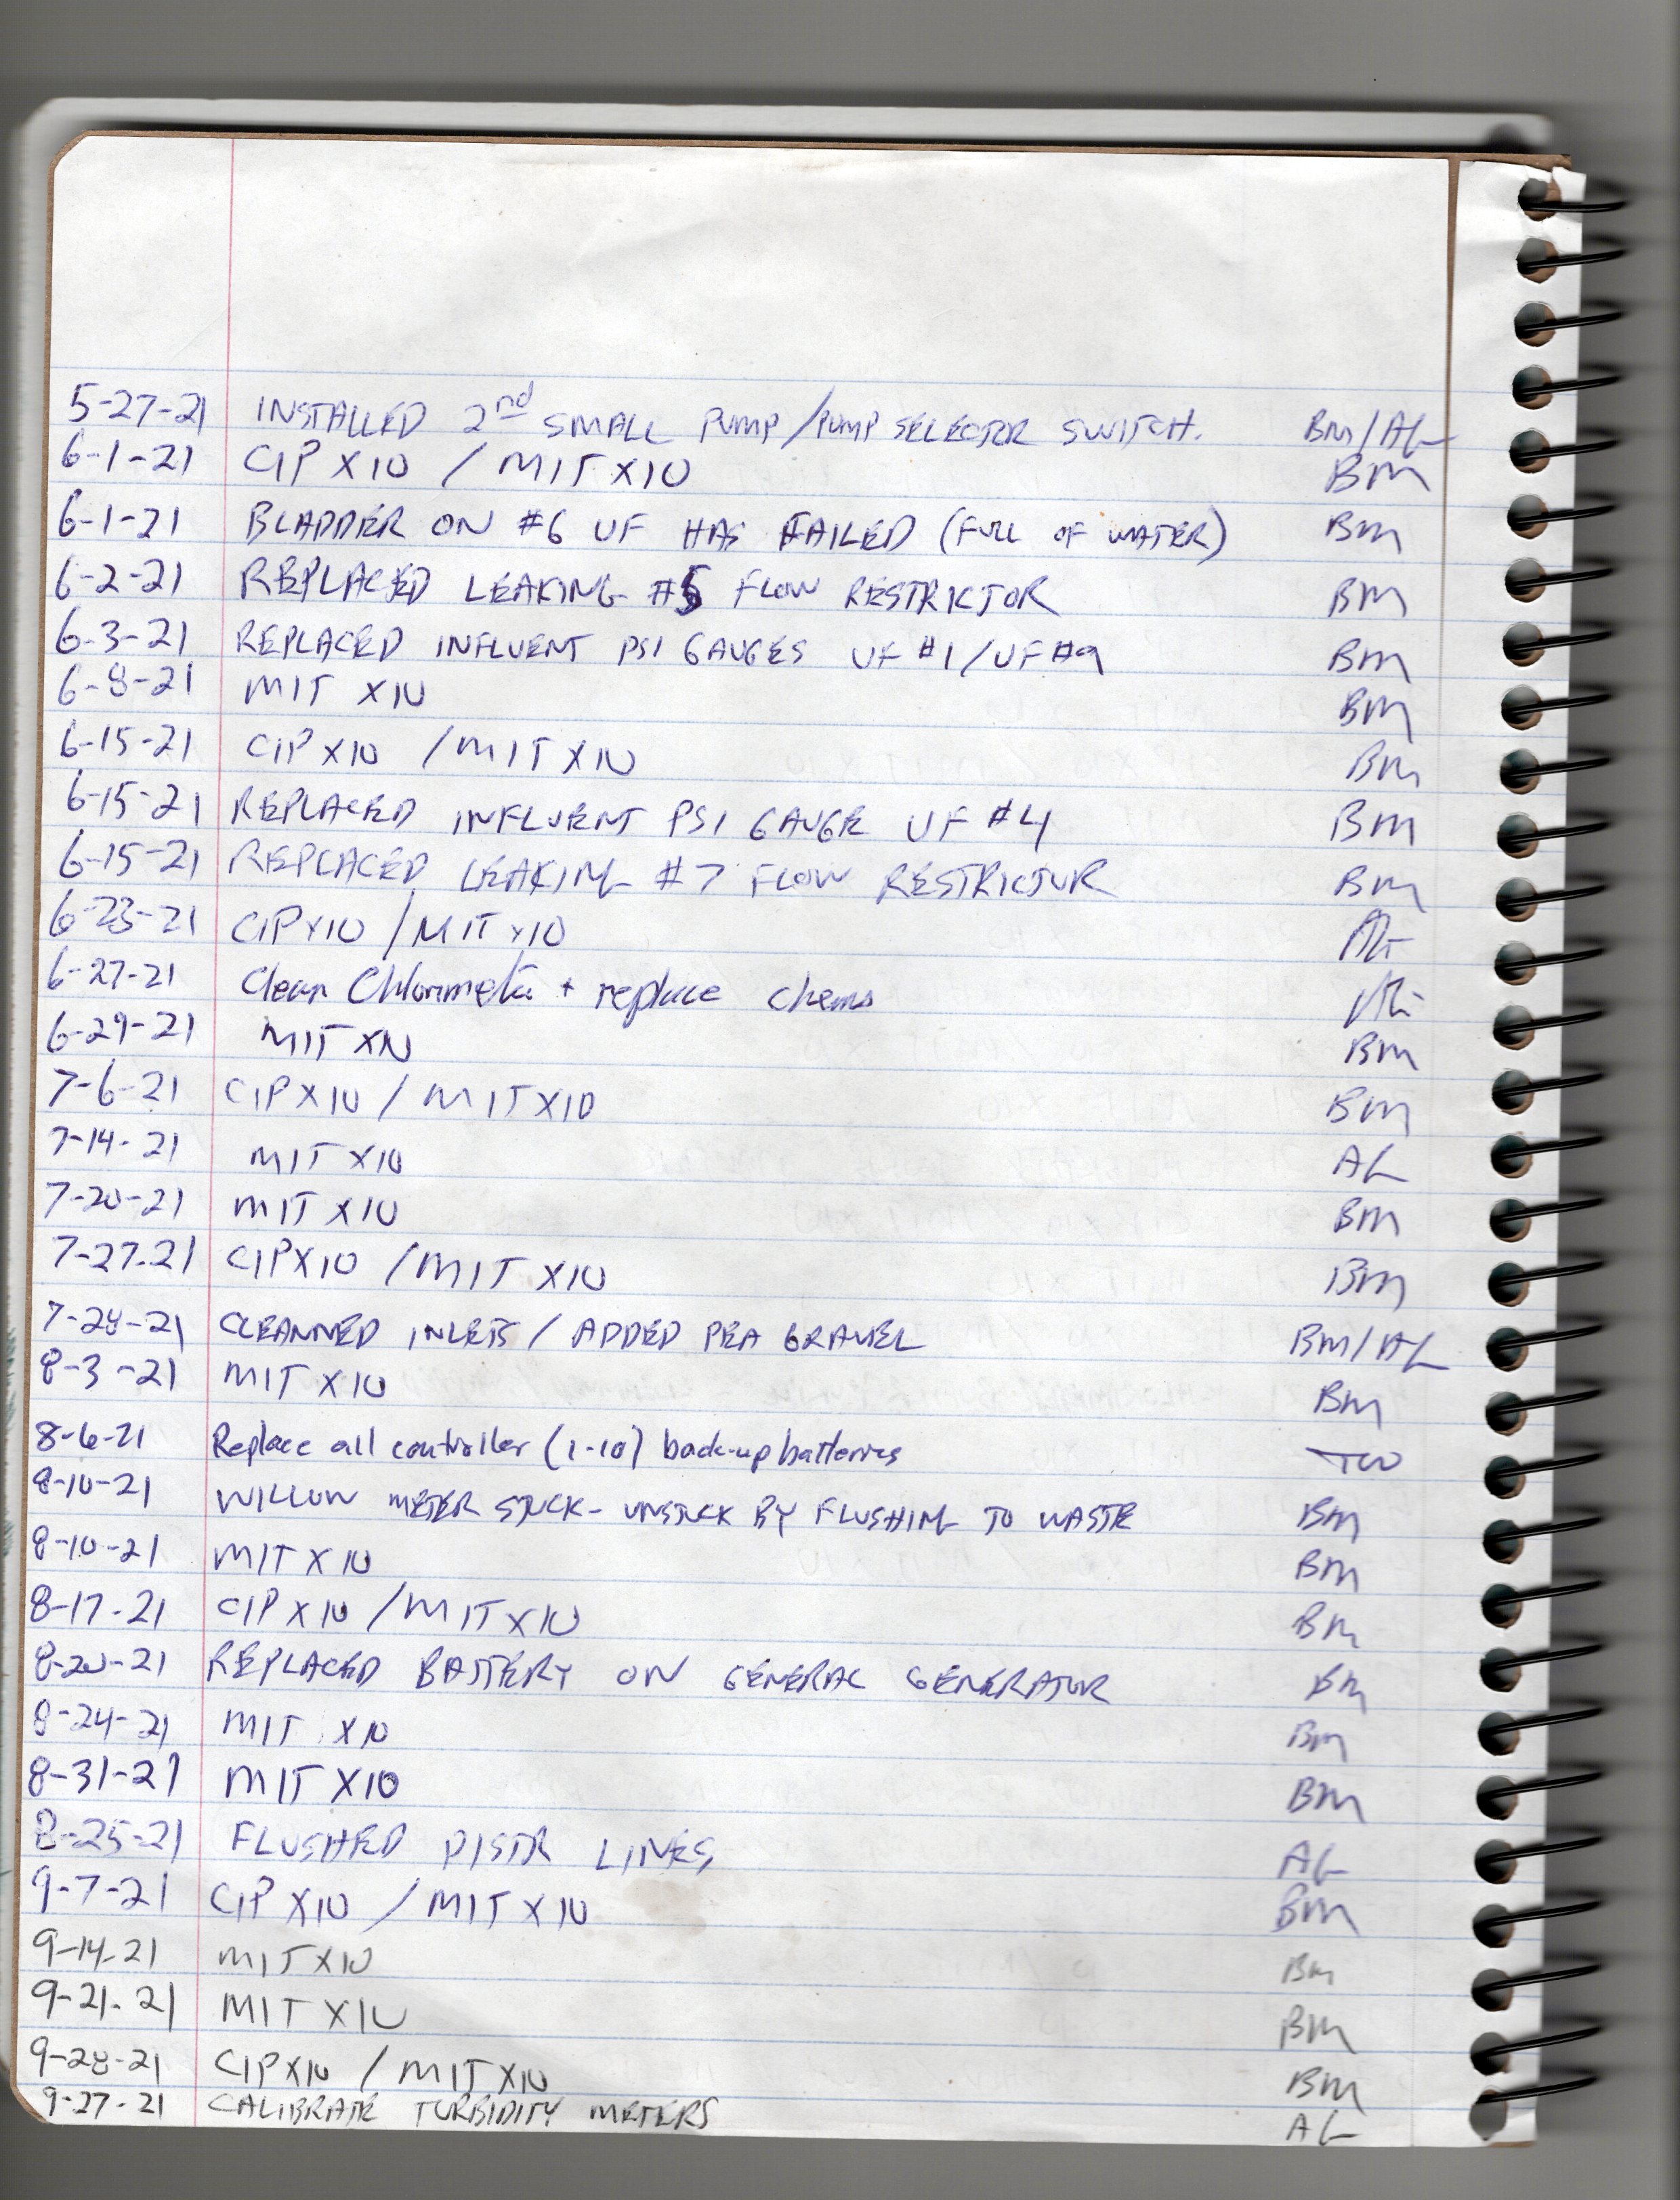 5-27-21 INSTALLED 2nd SMALL PUMP/PUMP SELECTOR SWITCH. BM/AL
6-1-21 CIP X10 / MIT X10 BM
6-1-21 BLADDER ON #6 UF HAS FAILED (FULL OF WATER) BM
6-2-21 REPLACED LEAKING #5 FLOW RESTRICTOR BM
6-3-21 REPLACED INFLUENT PSI GAUGES UF #1/UF #9 BM
6-8-21 MIT X10 BM
6-15-21 CIP X10 /MIT X10 BM
6-15-21 REPLACED INFLUENT PSI GAUGE UF #4 BM
6-15-21 REPLACED LEAKING #7 FLOW RESTRICTOR BM
6-23-21 CIP X10 / MIT X10
6-27-21 Clean + replace chems
6-29-21 MIT X10 BM
7-6-21 CIP X10 / MIT X10 BM
7-14-21 MIT X10 AL
7-20-21 MIT X10 BM
7-27-21 CIP X10 /MIT X10 BM
7-28-21 CLEANNED INLETS / ADDED PEA GRAVEL BM/AL
8-3-21 MIT X10 BM
8-6-21 Replace all controller (1-10) back-up batteries TW
8-10-21 WILLOW METER STUCK - UNSTUCK BY FLUSHING TO WASTE BM
8-10-21 MIT X10 BM
8-17-21 CIP X10 /MIT X10 BM
8-20-21 REPLACED BATTERY ON GENERAC GENERATOR BM
8-24-21 MIT X10 BM
8-31-21 MIT X10 BM
8-25-21 FLUSHED DISTR LINES AL
9-7-21 CIP X10 / MIT X10 BM
9-14-21 MIT X10 BM
9-21-21 MIT X10 BM
9-28-21 CIP X10 / MIT X10 BM
9-27-21 CALIBRATE TURBIDITY METERS AL